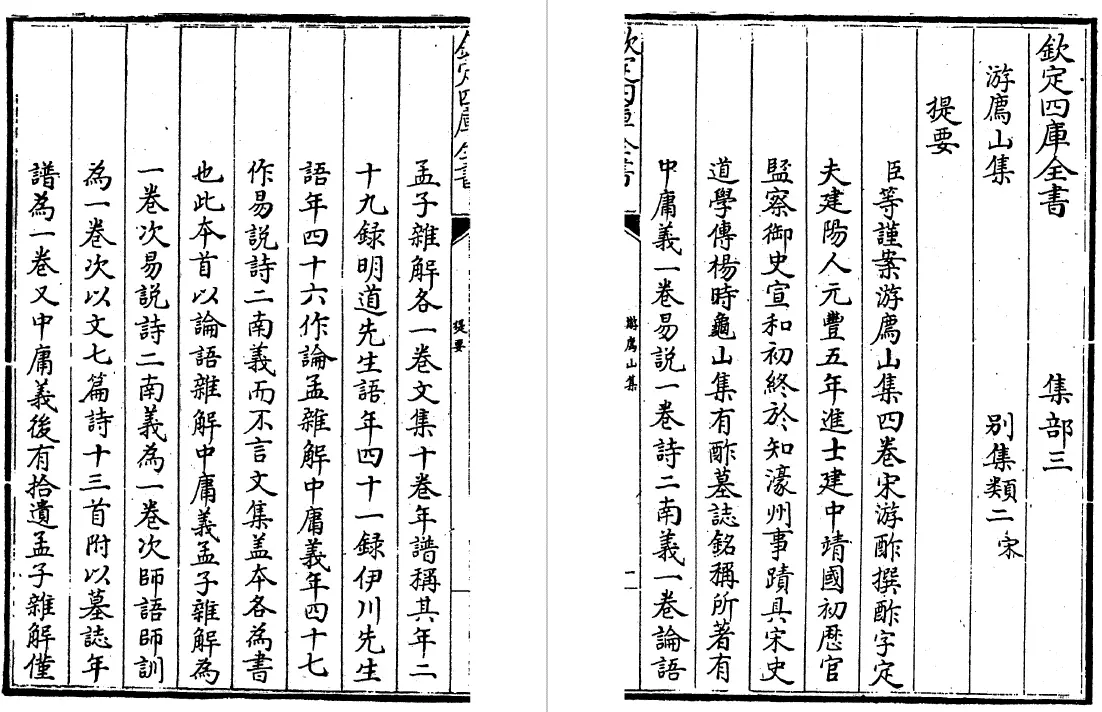 欽定四庫全書　集部三
游廌山集　别集類二宋
提要
臣等謹案游廌山集四卷宋游酢撰酢字定
夫建陽人元豐五年進士建中靖國初歴官
監察御史宣和初終於知濠州事蹟具宋史
道學傳楊時龜山集有酢墓誌銘稱所著有
中庸義一卷易説一卷詩二南義一卷論語
欽定四庫全書
游廌山集
提要
一
孟子雜解各一卷文集十卷年譜稱其年二
十九録明道先生語年四十一録伊川先生
語年四十六作論孟雜解中庸義年四十七
作易説詩二南義而不言文集盖本各為書
也此本首以論語雜解中庸義孟子雜解為
一卷次易説詩二南義為一卷次師語師訓
為一卷次以文七篇詩十三首附以墓誌年
譜為一卷又中庸義後有拾遺孟子雜解僅